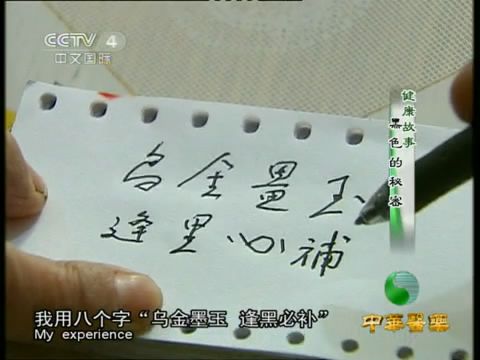 CCTV 4
中文国际
健康故事
黑色的秘密
乌金墨玉
逢黑必補
中華醫藥
我用八个字“乌金墨玉 逢黑必补”
My experience